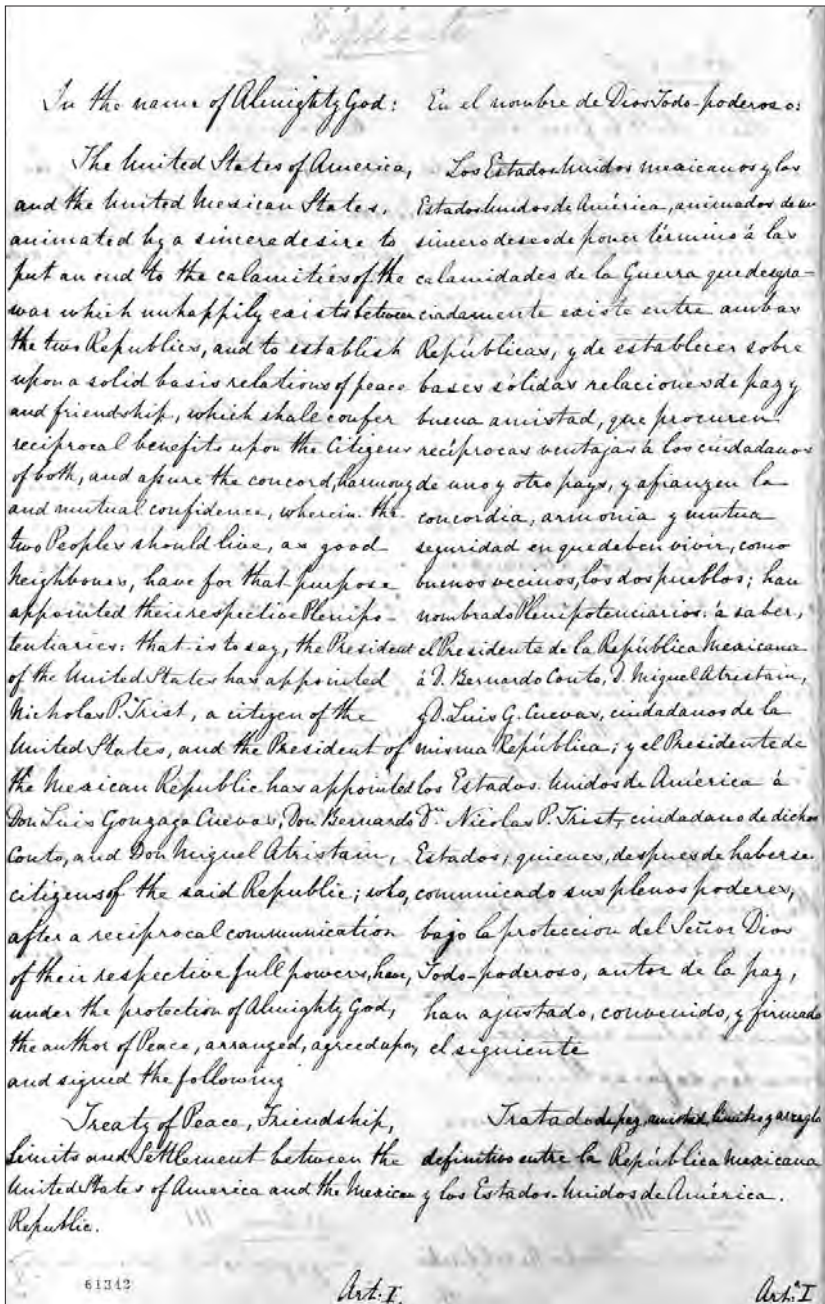 In the name of Almighty God:
The United States of America,
and the United Mexican States,
animated by a sincere desire to
put an end to the calamities of the
war which unhappily exists between
the two Republics, and to establish
upon a solid basis relations of peace
and friendship, which shall confer
reciprocal benefits upon the Citizens
of both, and assure the concord, harmony
and mutual confidence, wherein the
two Peoples should live, as good
Neighbours, have for that purpose
appointed their respective Plenipo-
tentiaries: that is to say, the President
of the United States has appointed
Nicholas P. Trist, a citizen of the
United States, and the President of
the Mexican Republic has appointed
Don Luis Gonzaga Cuevas, Don Bernardo
Couto, and Don Miguel Atristain,
citizens of the said Republic; who,
after a reciprocal communication
of their respective full powers, have,
under the protection of Almighty God,
the author of Peace, arranged, agreed upon,
and signed the following
Treaty of Peace, Friendship,
Limits and Settlement between the
United States of America and the Mexican
Republic.
61342
Art: I.
En el nombre de Dios Todo-poderoso:
Los Estados Unidos mexicanos y los
Estados Unidos de América, animados de un
sincero deseo de poner término á las
calamidades de la Guerra que desgra-
ciadamente existe entre ambas
Repúblicas, y de establecer sobre
bases sólidas relaciones de paz y
buena amistad, que procuren
recíprocas ventajas á los ciudadanos
de uno y otro pays, y afianzen la
concordia, armonia y mutua
seguridad en que deben vivir, como
buenos vecinos, los dos pueblos; han
nombrado Plenipotenciarios: á saber,
el Presidente de la República Mexicana
á D. Bernardo Couto, D. Miguel Atristain,
y D. Luis G. Cuevas, ciudadanos de la
misma República; y el Presidente de
los Estados Unidos de América á
Dn. Nicolas P. Trist, ciudadano de dichos
Estados; quienes, despues de haberse
comunicado sus plenos poderes,
bajo la proteccion del Señor Dios
Todo-poderoso, autor de la paz,
han ajustado, convenido, y firmado
el siguiente
Tratado de paz, amistad, limites y arreglo
definitivo entre la República Mexicana
y los Estados-Unidos de América.
Art.º I